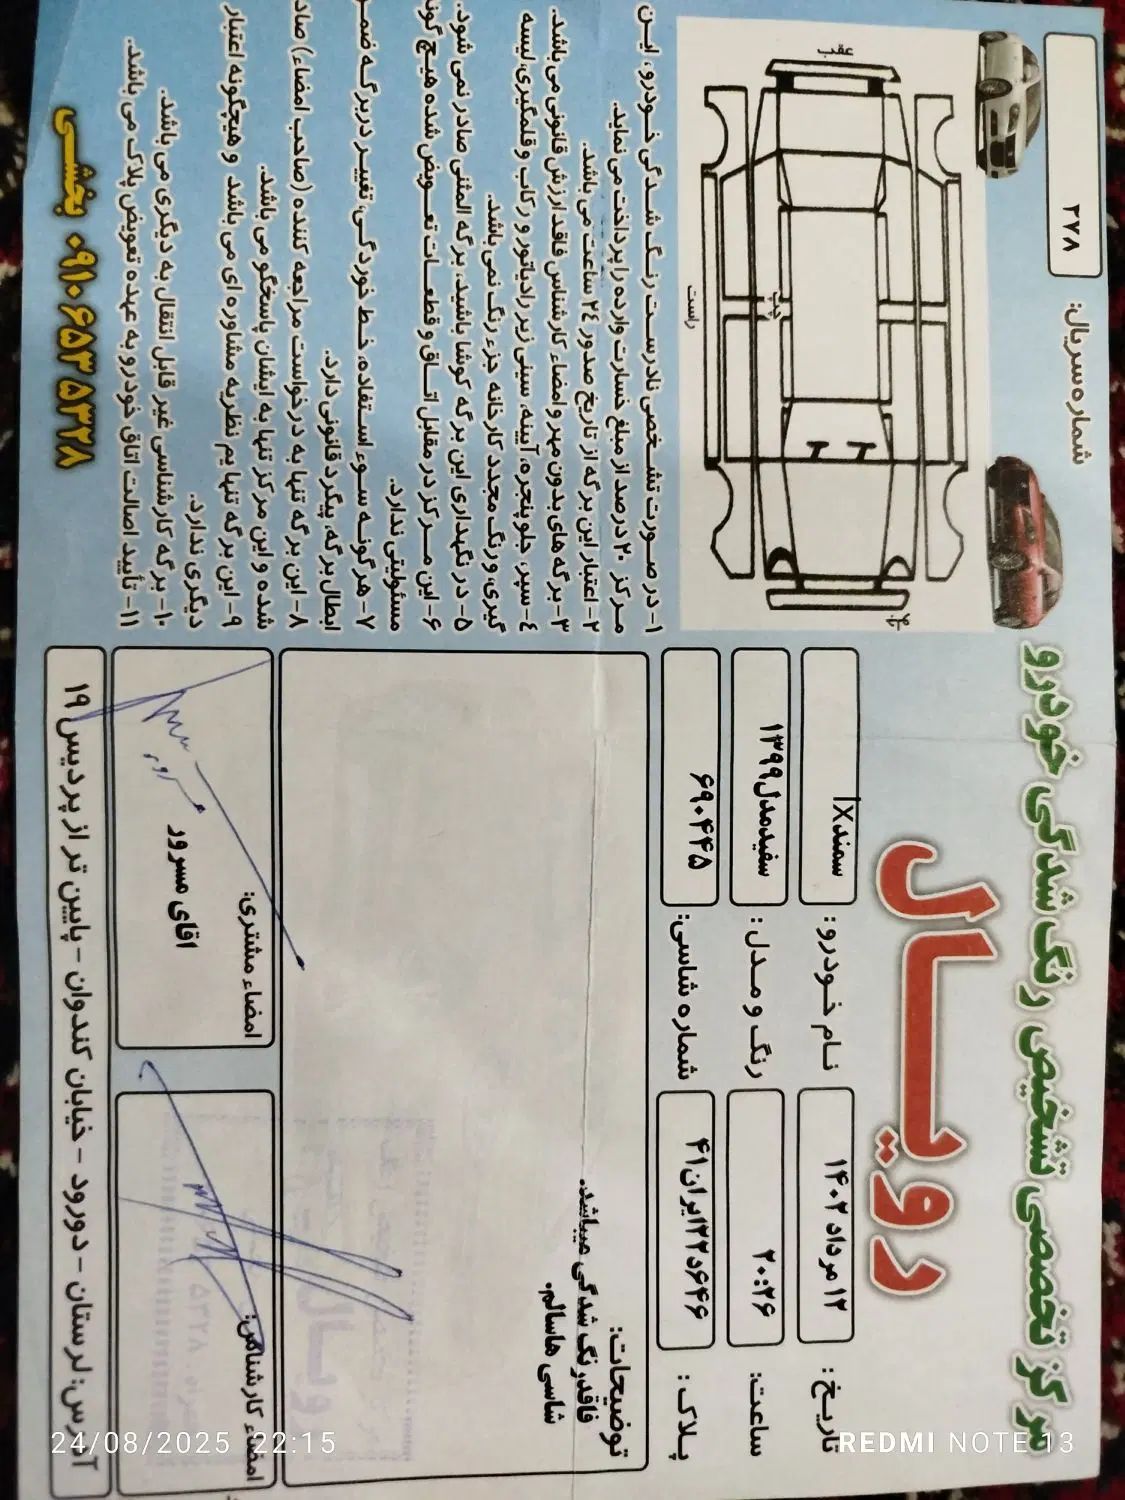 مرکز تخصصی تشخیص رنگ شدگی خودرو
دویـــال
شماره سریال:
۲۷۸
تاریخ:
۱۲مرداد ۱۴۰۲
نــام خــودرو:
سمندlX
ساعت:
۲۰:۲۶
رنگ و مــدل:
سفیدمدل۱۳۹۹
پــلاک:
۶۴۶د۲۲ایران۴۱
شماره شاسی:
۶۹۰۴۴۵
توضیحات:
فاقدرنگ شدگی میباشد.
شاسی هاسالم.
عقب
چپ
راست
۱- در صــورت تشــخصی نادرســت رنــگ شــدگی خــودرو، ایــن
مــرکز ۲۰ درصد از مبلغ خسارت وارده را پرداخت می نماید.
۲- اعتبار این برگه از تاریخ صدور ۲٤ ساعت می باشد.
۳- برگه های بدون مهر و امضاء کارشناس فاقد ارزش قانونی می باشد.
٤- سپر، جلو پنجره، آیینه، سینی زیر رادیاتور و رکاب و قلمگیری، لیسه
گیری و رنگ مجدد کارخانه جزء رنگ نمی باشد.
۵- در نگهداری این برگه کوشا باشید، برگه المثنی صادر نمی شود.
۶- این مــرکز در مقابل اتــاق و قطعــات تعــویض شده هیچ گونه
مسئولیتی ندارد.
۷- هرگونــه ســوء اســتفاده، خــط خوردگــی، تغییــر در برگــه ضمــن
ابطال برگه، پیگرد قانونی دارد.
۸- این برگه تنها به درخواست مراجعه کننده (صاحب امضاء) صادر
شده و این مرکز تنها به ایشان پاسخگو می باشد.
۹- این برگه تنها یم نظریه مشاوره ای می باشد و هیچگونه اعتبار
دیگری ندارد.
۱۰- برگه کارشناسی غیر قابل انتقال به دیگری می باشد.
۱۱- تأیید اصالت اتاق خودرو به عهده تعویض پلاک می باشد.
امضاء کارشناس:
امضاء مشتری:
اقای مسرور
۰۹۱۰ ۶۵۳ ۵۳۲۸ بخشی
آدرس: لرستان - دورود - خیابان کندوان - پایین تر از پردیس ۱۹
24/08/2025 22:15
REDMI NOTE 13